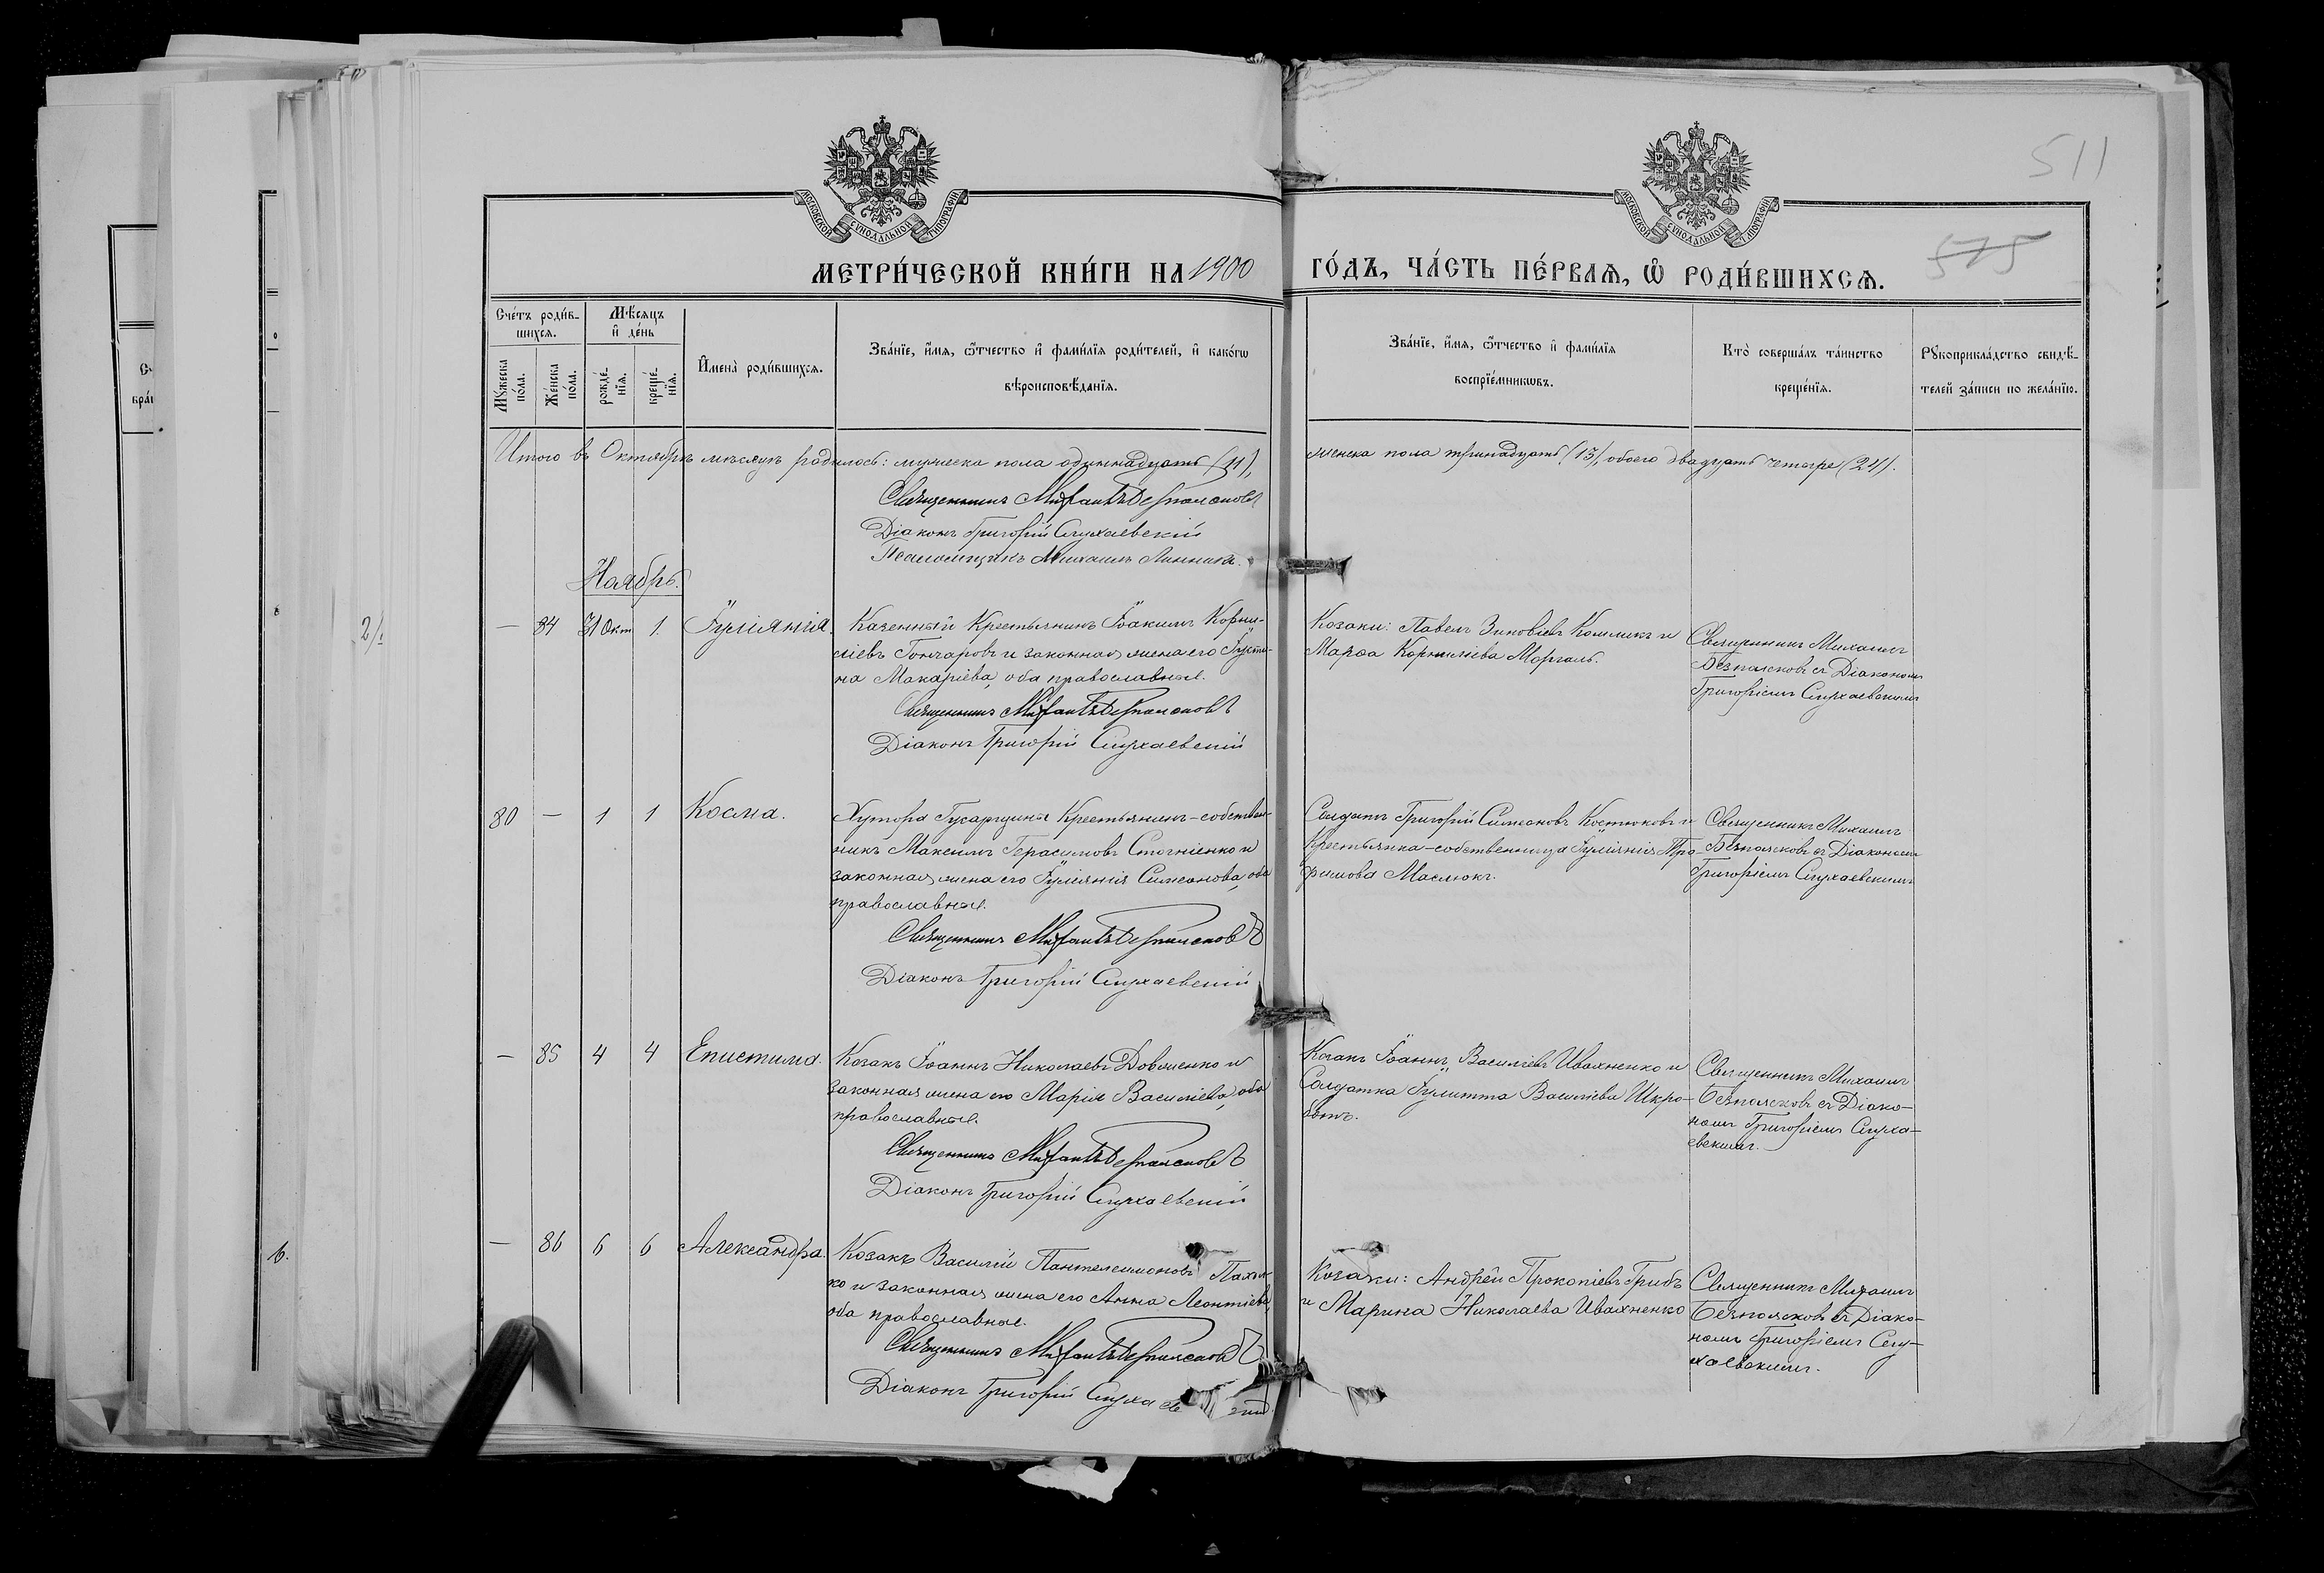 МОСКОВСКОЙ СѴНОДАЛЬНОЙ ТИПОГРАФІИ
МОСКОВСКОЙ СѴНОДАЛЬНОЙ ТИПОГРАФІИ
511
515
МЕТРИ́ЧЕСКОЙ КНИ́ГИ НА 1900
ГО́ДЪ, ЧА́СТЬ ПЕ́РВАѦ, Ѡ҆ РОДИ́ВШИХСѦ.
Сче́тъ роди́в-
шихсѧ.
Мꙋ́жеска
по́ла.
Же́нска
по́ла.
Мѣ́сѧцъ
и҆ де́нь
рожде́-
нїѧ.
креще́-
нїѧ.
И҆мена̀ роди́вшихсѧ.
Зва́нїе, и҆́мѧ, ѻ҆́тчество и҆ фами́лїѧ роди́телей, и҆ како́гѡ
вѣроисповѣ́данїѧ.
Зва́нїе, и҆́мѧ, ѻ҆́тчество и҆ фами́лїѧ
воспрїе́мникѡвъ.
Кто̀ соверша́лъ та́инство
креще́нїѧ.
Рꙋкоприкла́дство свидѣ́-
телей за́писи по жела́нїю.
Итого въ Октябрѣ мѣсяцѣ родилось: мужеска пола одиннадцать (11),
женска пола тринадцать (13), обоего двадцать четыре (24).
Священникъ Михаилъ Безпалсковъ
Діаконъ Григорій Слухаевскій
Псаломщикъ Михаилъ Линникъ.
Ноябрь.
— 84 31 Окт 1. Іуліанія.
Казенный Крестьянинъ Іоакимъ Корни-
ліевъ Гончаровъ и законная жена его Іусти-
на Макаріева, оба православные.
Священникъ Михаилъ Безпалсковъ
Діаконъ Григорій Слухаевскій
Козаки: Павелъ Зиновіевъ Коликъ и
Марѳа Корниліева Моргаль.
Священникъ Михаилъ
Безпалсковъ съ Діакономъ
Григоріемъ Слухаевскимъ
80 — 1 1 Косма.
Хутора Гусарщины Крестьянинъ-собствен-
никъ Максимъ Герасимовъ Стогніенко и
законная жена его Іуліанія Симеонова, оба
православные.
Священникъ Михаилъ Безпалсковъ
Діаконъ Григорій Слухаевскій
Солдатъ Григорій Симеоновъ Костюковъ и
Крестьянка-собственница Іуліанія Тро-
фимова Маслюкъ.
Священникъ Михаилъ
Безпалсковъ съ Діакономъ
Григоріемъ Слухаевскимъ
— 85 4 4 Епистима.
Козакъ Іоаннъ Николаевъ Довженко и
законная жена его Марія Василіева, оба
православные.
Священникъ Михаилъ Безпалсковъ
Діаконъ Григорій Слухаевскій
Козакъ Іоаннъ Василіевъ Ивахненко и
Солдатка Іулитта Василіева Шкро-
ботъ.
Священникъ Михаилъ
Безпалсковъ съ Діако-
номъ Григоріемъ Слуха-
евскимъ.
— 86 6 6 Александра.
Козакъ Василій Пантелеимоновъ
ко и законная жена его Анна Леонтіева,
оба православные.
Священникъ Михаилъ Безпалсковъ
Діаконъ Григорій
Козаки: Андрей Прокопіевъ Грибъ
и Марина Николаева Ивахненко
Священникъ Михаилъ
Безпалсковъ съ Діако-
номъ Григоріемъ Слу-
хаевскимъ.